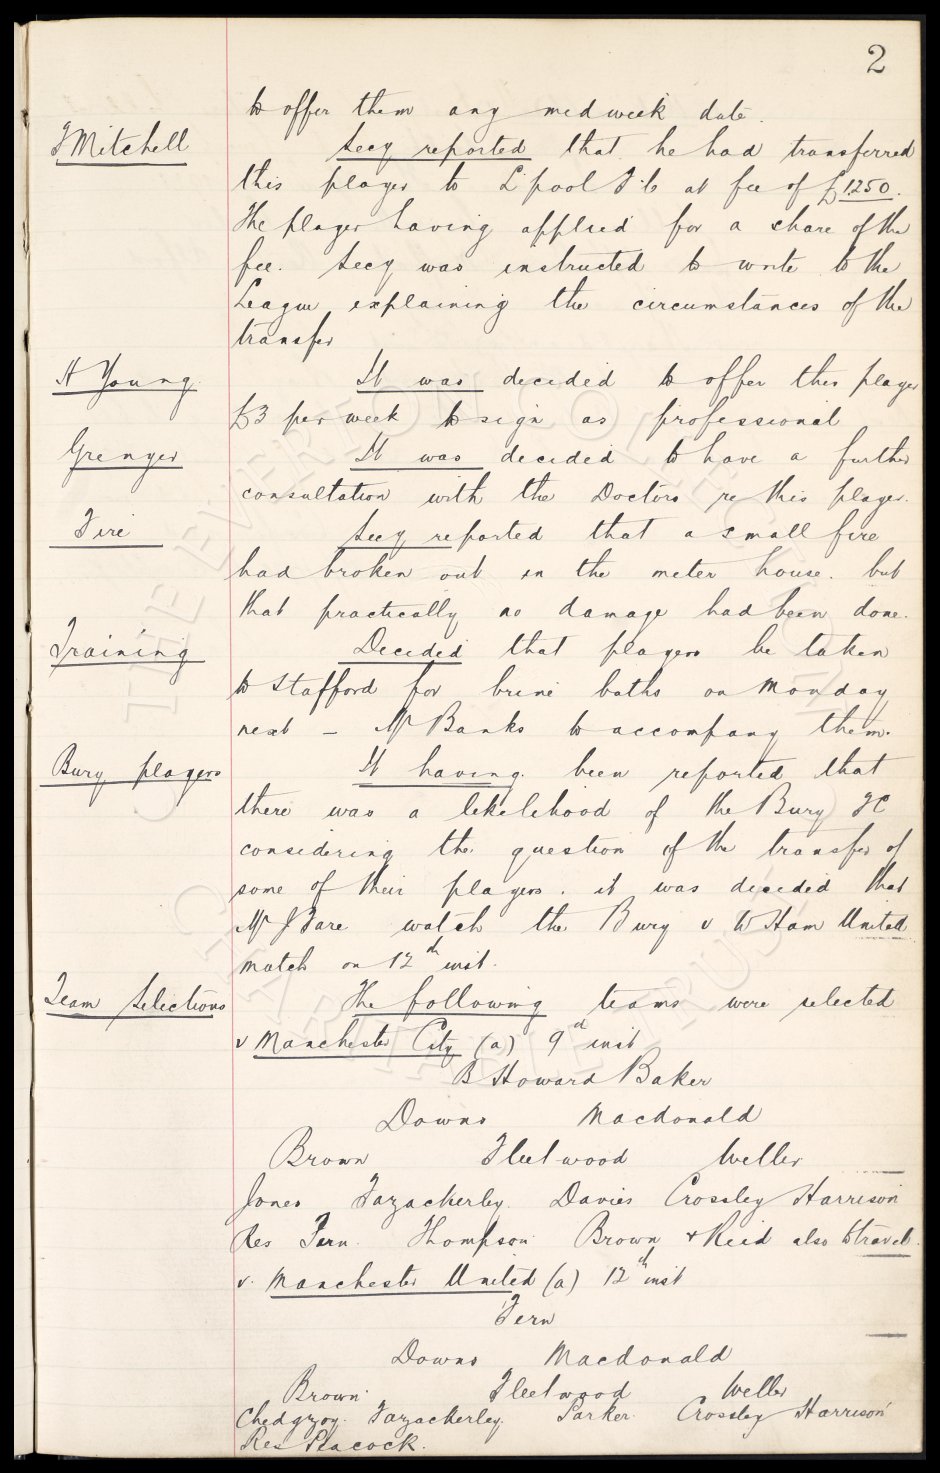 2
to offer them any midweek date.
F Mitchell
Secy reported that he had transferred
this player to L'pool F.C. at fee of £1250.
The player having applied for a share of the
fee. Secy was instructed to write to the
League explaining the circumstances of the
transfer
A Young.
It was decided to offer this player
£3 per week to sign as professional
Grenyer
It was decided to have a further
consultation with the Doctors re this player.
Fire
Secy reported that a small fire
had broken out in the meter house. but
that practically no damage had been done.
Training
Decided that players be taken
to Stafford for brine baths on Monday
next - Mr Banks to accompany them.
Bury players
It having been reported that
there was a likelihood of the Bury FC
considering the question of the transfer of
some of their players. it was decided that
Mr J Fare watch the Bury v W Ham United
match on 12th inst.
Team Selections
The following teams were selected
v Manchester City (a) 9th inst
B Howard Baker
Downs Macdonald
Brown Fleetwood Weller
Jones Fazackerley. Davies Crossley Harrison
Res Fern. Thompson Brown & Reid also to travel.
v. Manchester United (a) 12th inst
Fern
Downs Macdonald
Brown. Fleetwood Weller
Chedgzoy. Fazackerley. Parker. Crossley Harrison
Res Peacock.